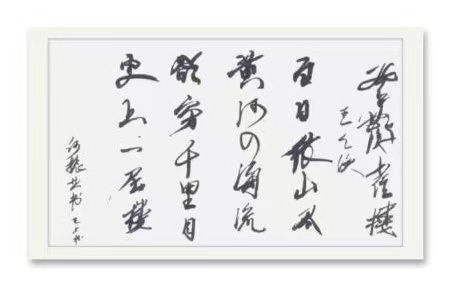 登鹳雀樓
王之涣
白日依山尽
黄河入海流
欲穷千里目
更上一层樓